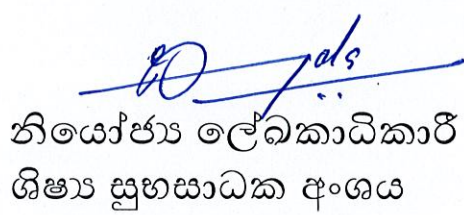 නියෝජ්‍ය ලේඛකාධිකාරී
ශිෂ්‍ය සුභසාධක අංශය